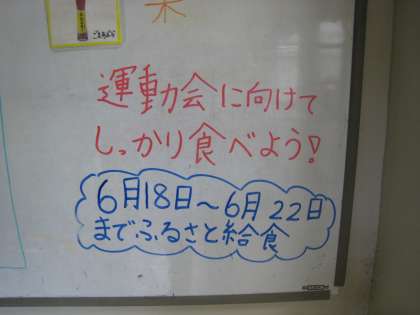 運動会に向けて
しっかり食べよう!
6月18日～6月22日
までふるさと給食